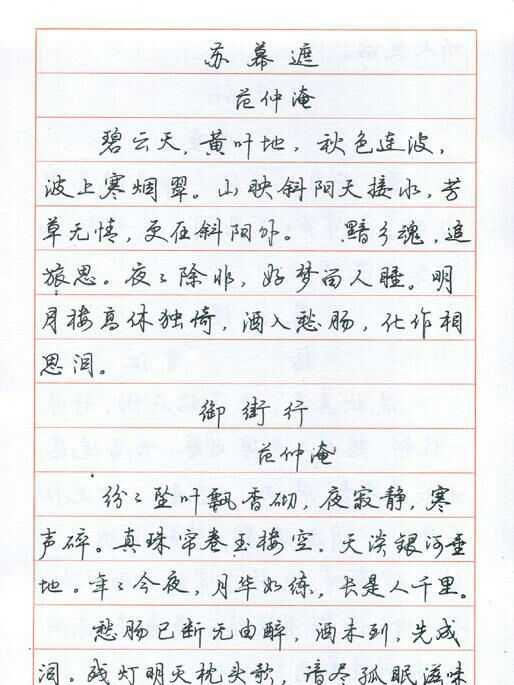 苏幕遮
范仲淹
碧云天,黄叶地,秋色连波,
波上寒烟翠。山映斜阳天接水,芳
草无情,更在斜阳外。 黯乡魂,追
旅思。夜々除非,好梦留人睡。明
月楼高休独倚,酒入愁肠,化作相
思泪。
御街行
范仲淹
纷々坠叶飘香砌,夜寂静,寒
声碎。真珠帘卷玉楼空。天淡银河垂
地。年々今夜,月华如练,长是人千里。
愁肠已断无由醉,酒未到,先成
泪。残灯明灭枕头欹,谙尽孤眠滋味